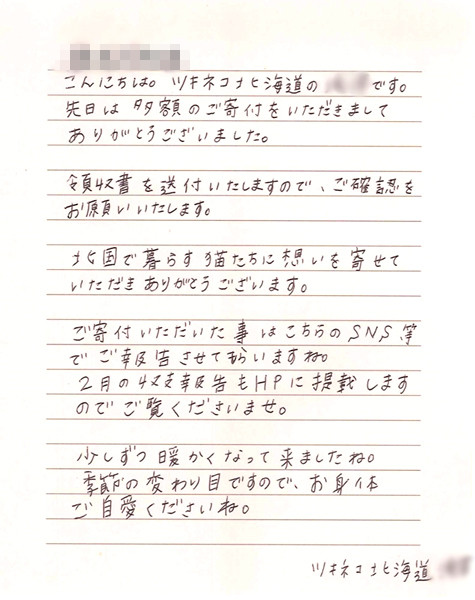 こんにちは。ツキネコ北海道の です。
先日は多額のご寄付をいただきまして
ありがとうございました。
領収書を送付いたしますので、ご確認を
お願いいたします。
北国で暮らす猫たちに想いを寄せて
いただきありがとうございます。
ご寄付いただいた事はこちらのSNS等
でご報告させてもらいますね。
2月の収支報告もHPに掲載します
のでご覧くださいませ。
少しずつ暖かくなって来ましたね。
季節の変わり目ですので、お身体
ご自愛くださいね。
ツキネコ北海道